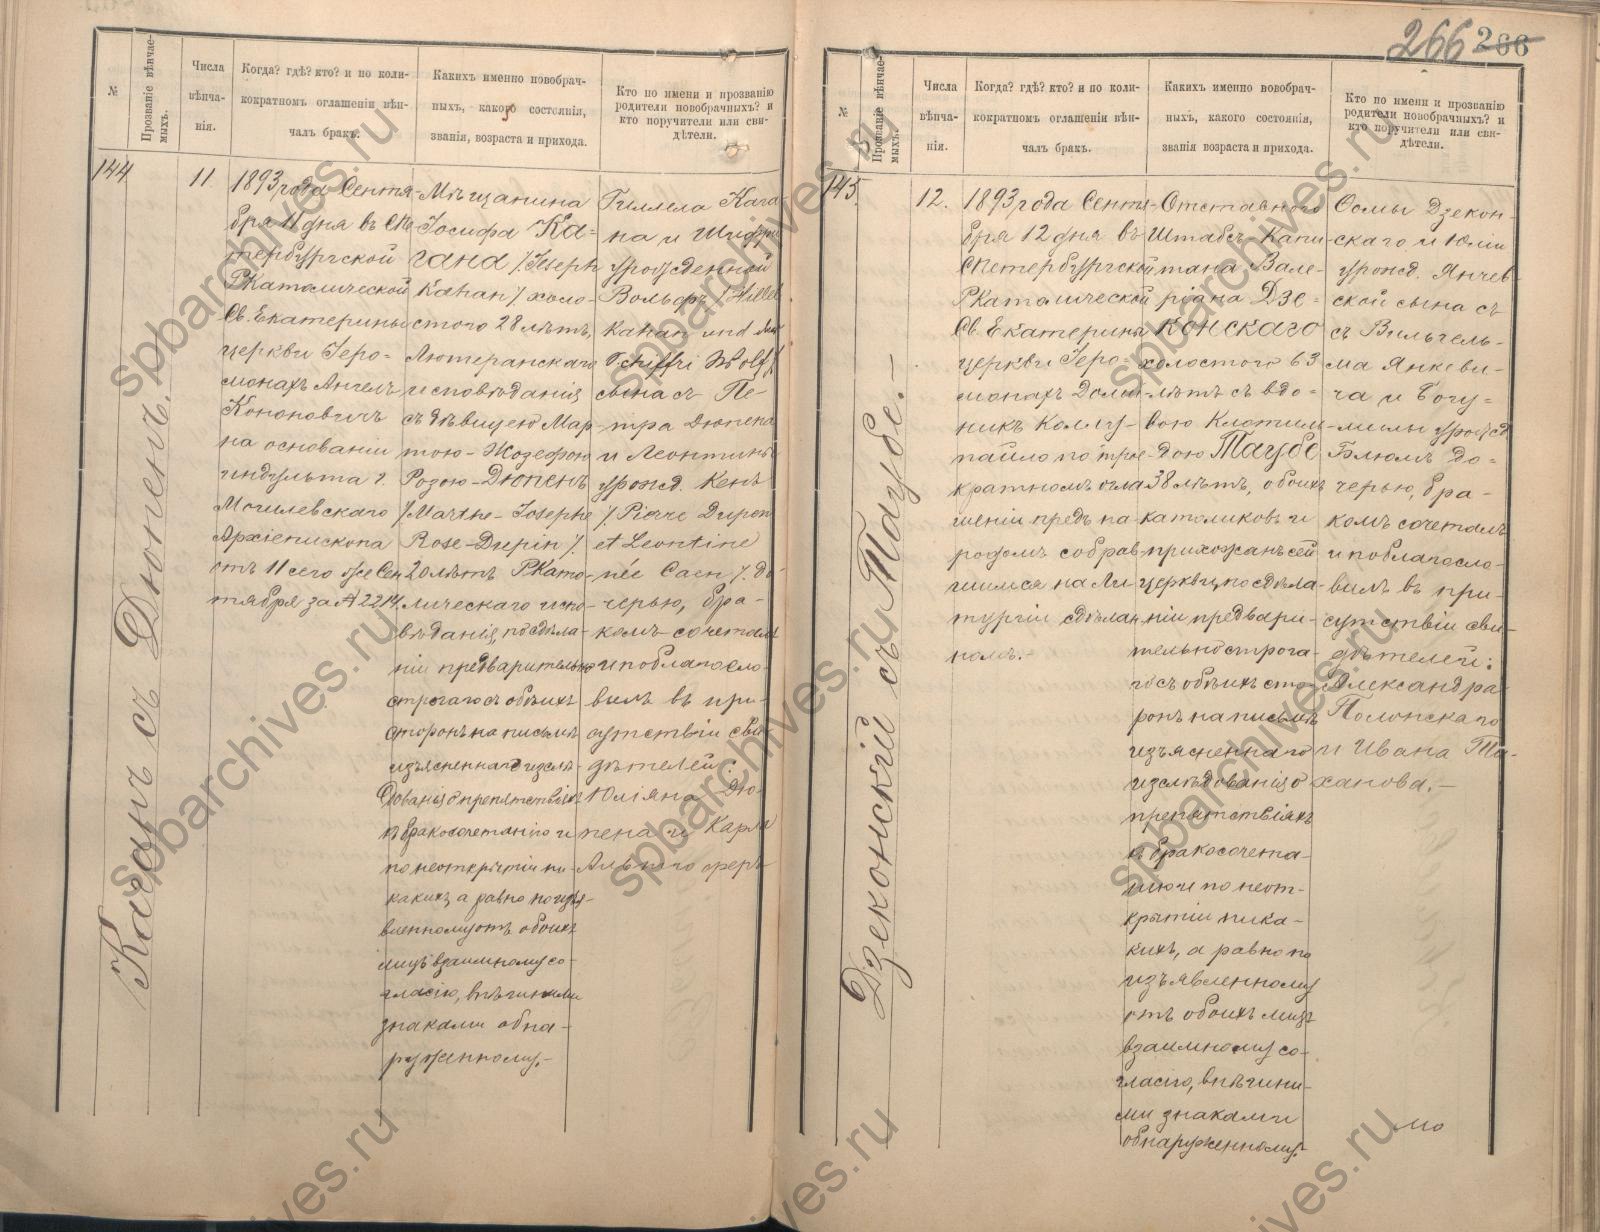 266 266
№
Прозваніе вѣнчае-
мыхъ.
Числа
вѣнча-
нія.
Когда? гдѣ? кто? и по коли-
кократномъ оглашеніи вѣн-
чалъ бракъ.
Какихъ именно новобрач-
ныхъ, какого состоянія,
званія, возраста и прихода.
Кто по имени и прозванію
родители новобрачныхъ? и
кто поручители или сви-
дѣтели.
144
Каганъ съ Дюпенъ.
11.
1893 года Сентя-
бря 11 дня въ СПе-
тербургской
РКатолической
Св. Екатерины
церкви Іеро-
монахъ Ангелъ
Кононовичъ
на основаніи
индульта г.
Могилевскаго
Архіепископа
отъ 11 сего же Сен
тября за № 2214
Мѣщанина
Іосифа Ка-
гана /Joseph
Kahan/. холо-
стого 28 лѣтъ,
Лютеранскаго
исповѣданія
съ дѣвицею Мар
тою-Жозефою
Розою-Дюпенъ
/Marthe-Josephe
Rose-Dupin/.
20 лѣтъ РКато-
лическаго испо-
вѣданія, по сдѣла-
ніи предварительно
строгаго съ обѣихъ
сторонъ на письмѣ
изъясненнаго изслѣ-
дованія о препятствіяхъ
къ бракосочетанію и
по неоткрытіи ни-
какихъ а равно по изъя-
вленному отъ обоихъ
лицъ взаимному со-
гласію, внѣшними
знаками обна-
руженному.-
Гиллела Кага
на и Шифри
урожденной
Вольфъ /Hillel
Kahan und
Schiffri Wolf/
сына съ Пе-
тра Дюпена
и Леонтины
урожд. Кенъ
/. Pierre Dupen
et Leontine
née Caen/. до-
черью, бра-
комъ сочеталъ
и поблагосло-
вилъ въ при-
сутствіи сви
дѣтелей:
Юліяна Дю-
пена и Карла
№
Прозваніе вѣнчае-
мыхъ.
Числа
вѣнча-
нія.
Когда? гдѣ? кто? и по коли-
кократномъ оглашеніи вѣн-
чалъ бракъ.
Какихъ именно новобрач-
ныхъ, какого состоянія,
званія возраста и прихода.
Кто по имени и прозванію
родители новобрачныхъ? и
кто поручители или сви-
дѣтели.
145.
Дзеконскій съ Таубе.-
12.
1893 года Сентя-
бря 12 дня въ
СПетербургской
РКатолической
Св. Екатерины
церкви Іеро-
монахъ Доми-
никъ Коллу-
пайло по трое-
кратномъ огла
шеніи предъ на-
родомъ собрав-
шимся на Ли-
тургіи сдѣлан
номъ.-
Отставного
Штабсъ-Капи-
тана Вале-
ріана Дзе-
конскаго
холостого 63
лѣтъ съ вдо-
вою Клотиль-
дою Таубе
38 лѣтъ, обоихъ
католиковъ и
прихожанъ сей
церкви, по сдѣла
ніи предвари-
тельно строга-
го съ обѣихъ сто-
ронъ на письмѣ
изъясненнаго
изслѣдованія о
препятствіяхъ
къ бракосочета-
нію и по неот-
крытіи ника-
кихъ, а равно по
изъявленному
отъ обоихъ лицъ
взаимному со-
гласію, внѣшни-
ми знаками
обнаруженному.
Осмы Дзекон-
скаго и Юліи
урожд. Янчев-
ской сына съ
съ Вильгель-
ма Янкеви-
ча и Богу-
милы урожд
Блюмъ до-
черью, бра-
комъ сочеталъ
и поблагосло-
вилъ въ при-
сутствіи сви-
дѣтелей:
Александра
Полонскаго
и Ивана Та-
ханова.-
spbarchives.ru